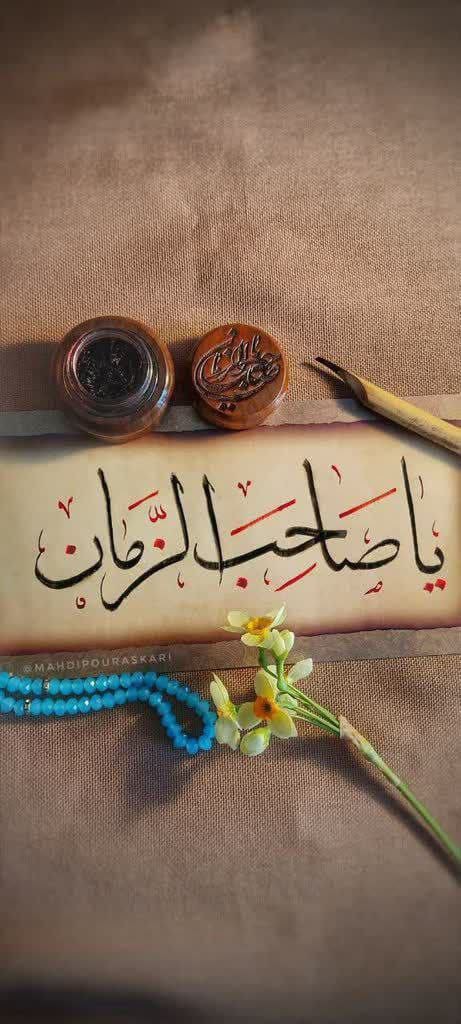 يا صاحب الزمان
@MAHDIPOURASKARI